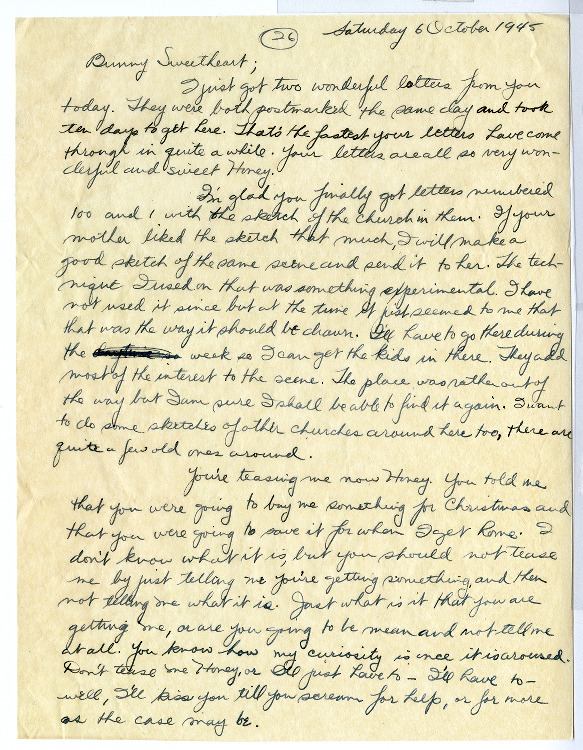 26
Saturday 6 October 1945
Bunny Sweetheart;
I just got two wonderful letters from you
today. They were both postmarked the same day and took
ten days to get here. That's the fastest your letters have come
through in quite a while. Your letters are all so very won-
derful and sweet Honey.
I'm glad you finally got letters numbered
100 and 1 with the sketch of the church in them. If your
mother liked the sketch that much, I will make a
good sketch of the same scene and send it to her. The tech-
nique I used on that was something experimental. I have
not used it since but at the time it just seemed to me that
that was the way it should be drawn. I'll have to go there during
the week so I can get the kids in there. They add
most of the interest to the scene. The place was rather out of
the way but I am sure I shall be able to find it again. I want
to do some sketches of other churches around here too, there are
quite a few old ones around.
You're teasing me now Honey. You told me
that you were going to buy me something for Christmas and
that you were going to save it for when I get home. I
don't know what it is, but you should not tease
me by just telling me you're getting something, and then
not telling me what it is. Just what is it that you are
getting me, or are you going to be mean and not tell me
at all. You know how my curiosity is once it is aroused.
Don't tease me Honey, or I'll just have to – I'll have to –
well, I'll kiss you till you scream for help, or for more
as the case may be.